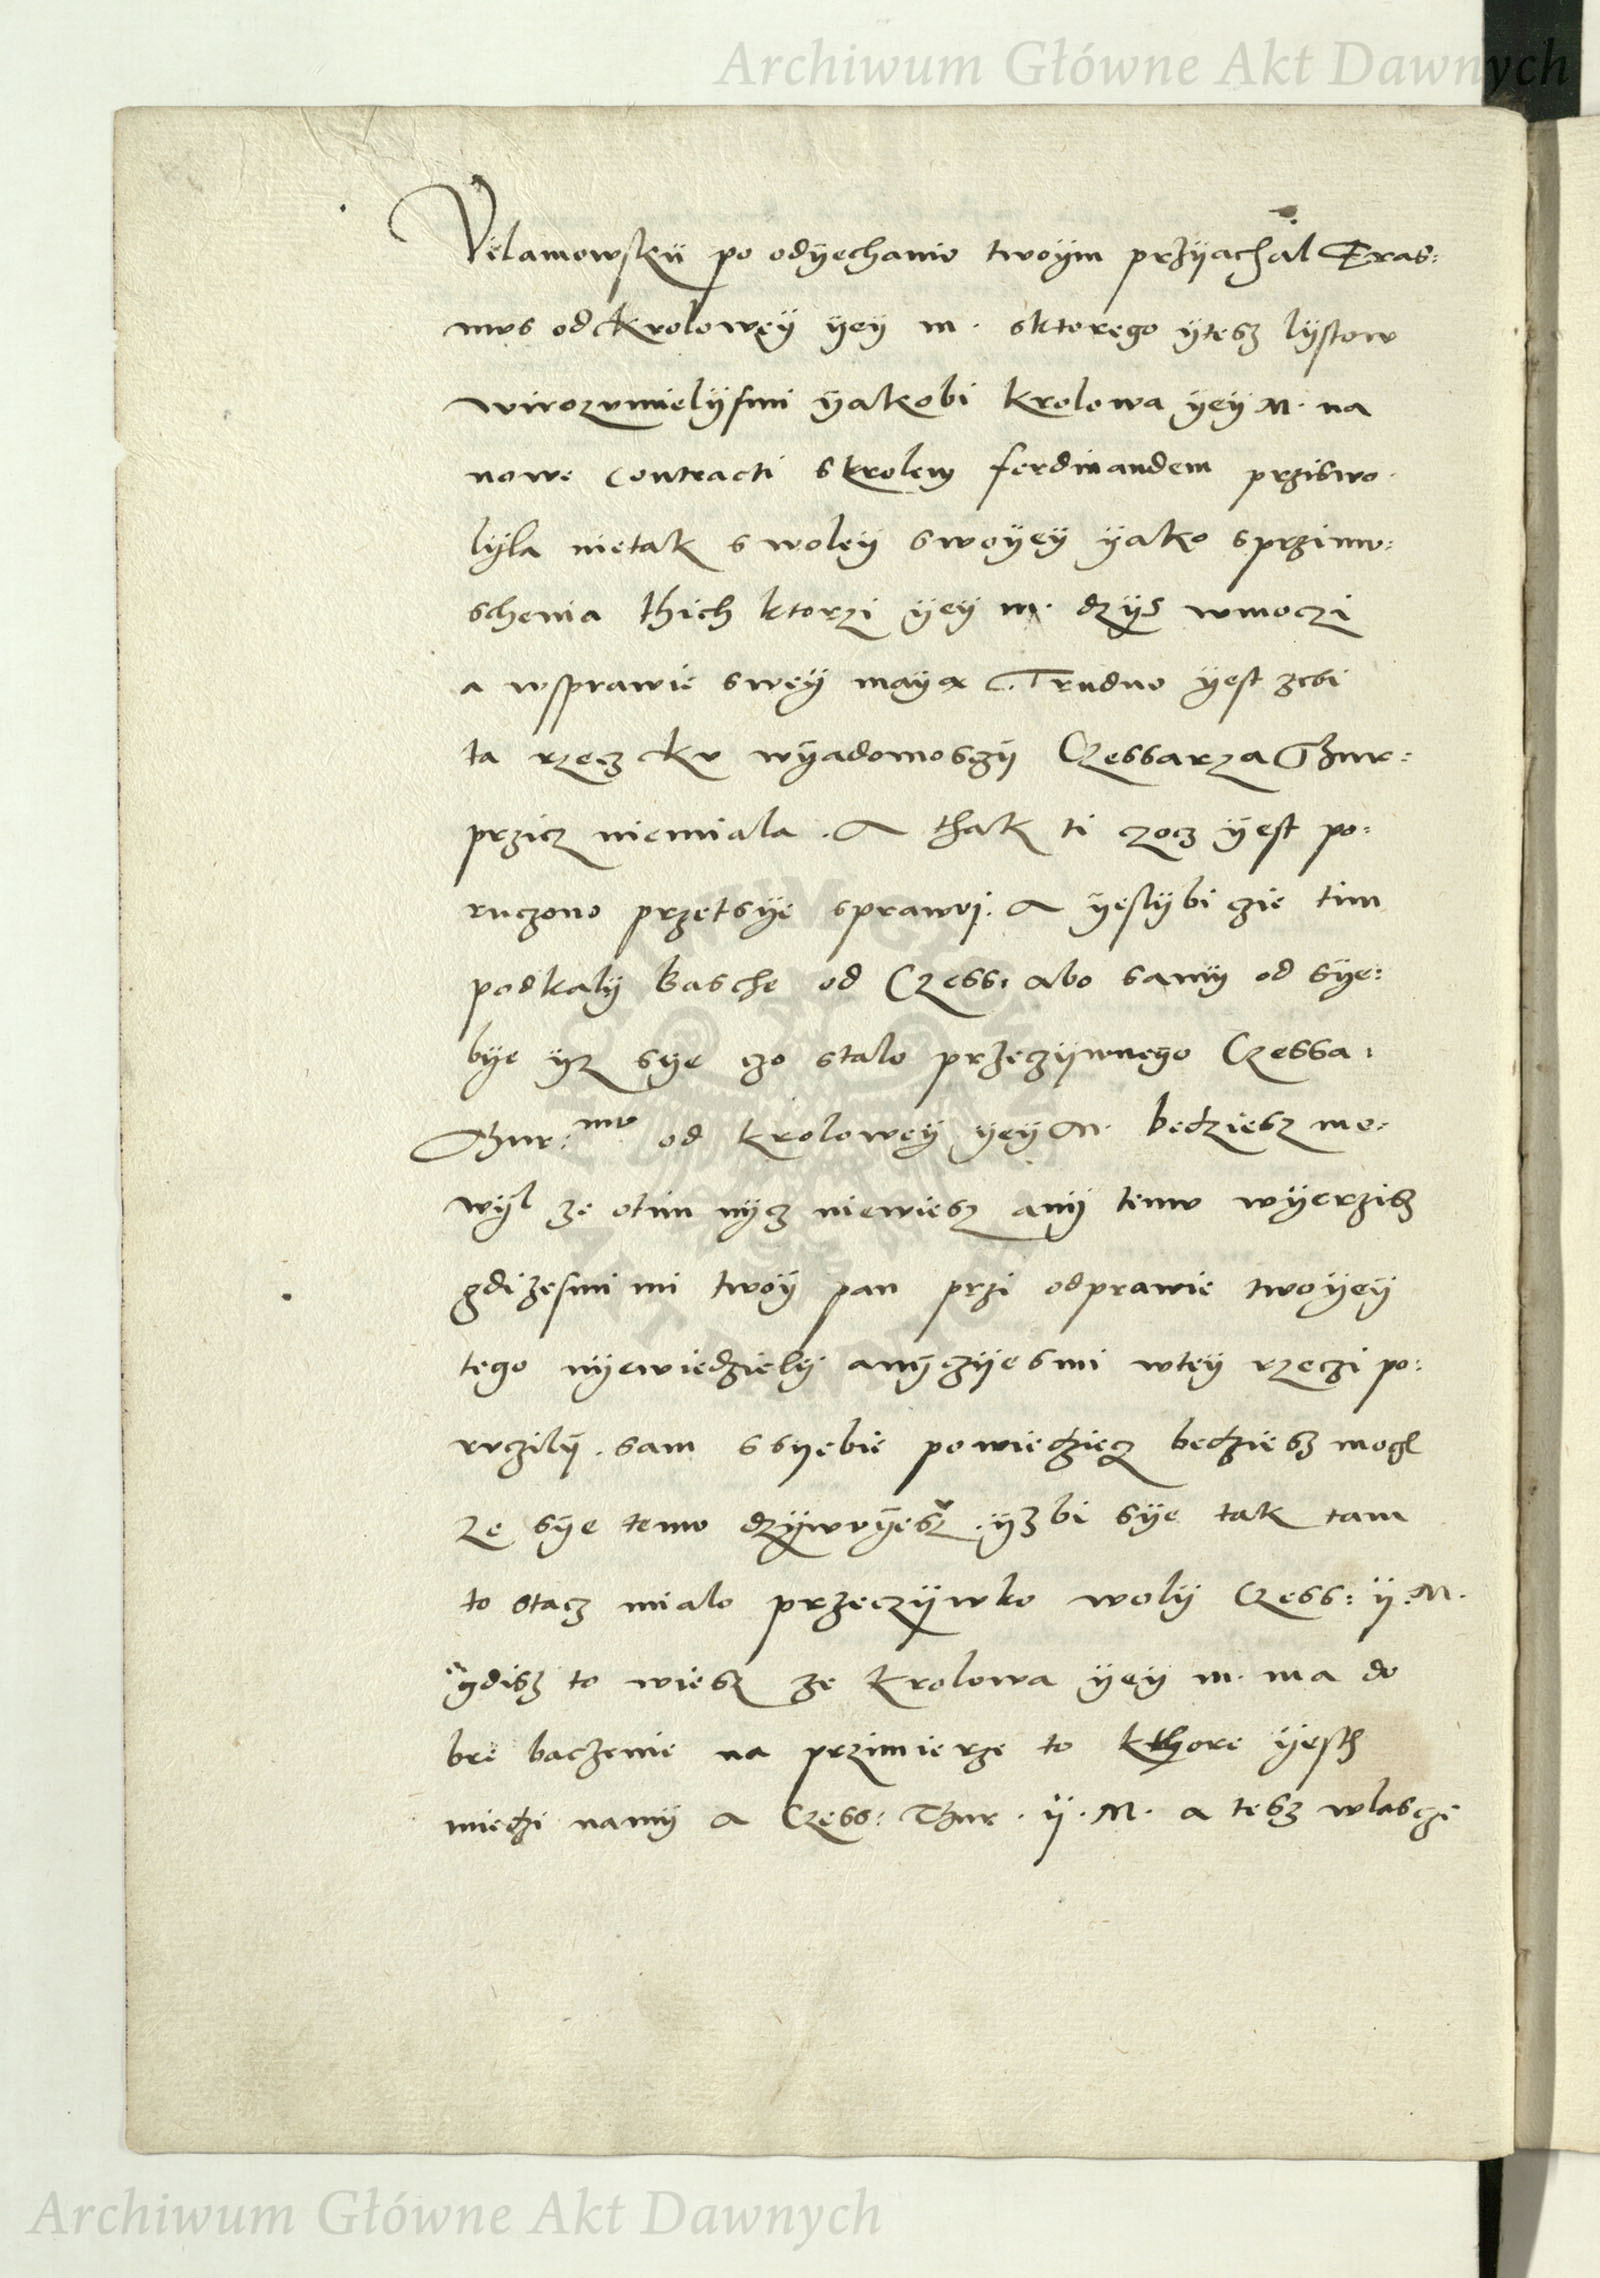 Archiwum Główne Akt Dawnych
Vilamowskÿ po odÿechanio twoÿm przÿachal Eras:
mvs od Krolowÿ ÿeÿ m. sktorego ÿtesz lÿstow
wirozvmielÿsmi ÿakobi krolowa ÿeÿ M. na
nowe contracti skrolem ferdinandem prziswo-
lÿla nietak s woleÿ swoÿeÿ ÿako sprzimv:
schenia thich ktorzi ÿeÿ m. dzÿs wmoczi
a wsprawie sweÿ maÿą. Trudno ÿest zebi
ta rzecz kv wÿadomosczÿ Czessarza Thur:
przicz niemiala. A thak ti czocz ÿest po:
ruczono przetsÿe sprawvj. A ÿeslÿbi czie tim
podkalÿ basche od Czess: abo samÿ od sÿe:
bÿe ÿz sÿe czo stalo przeczÿwnego Czessa:
Thur:mv od kroloweÿ ÿeÿ M. bedziesz mo:
wÿl ze otim nÿcz niewiesz anÿ temv wÿerzisz
gdizesmi mi twoÿ pan przi odprawie twoÿeÿ
tego nÿewiedzielÿ anÿ czÿesmi wteÿ rzeczi po:
rvczilÿ. sam ssÿebie powiedziecz bedziesz mogl
ze sÿe temv dzÿwvÿesz. ÿzbi sÿe tak tam
to stacz mialo przeczÿwko wolÿ Czess: ÿ. M.
gdisz to wiesz ze krolowa ÿeÿ m. ma do
bre baczenie na przimierze to kthore ÿesth
miedzi namÿ a Czess: Thur. ÿ. M. a tesz wlascze
Archiwum Główne Akt Dawnych